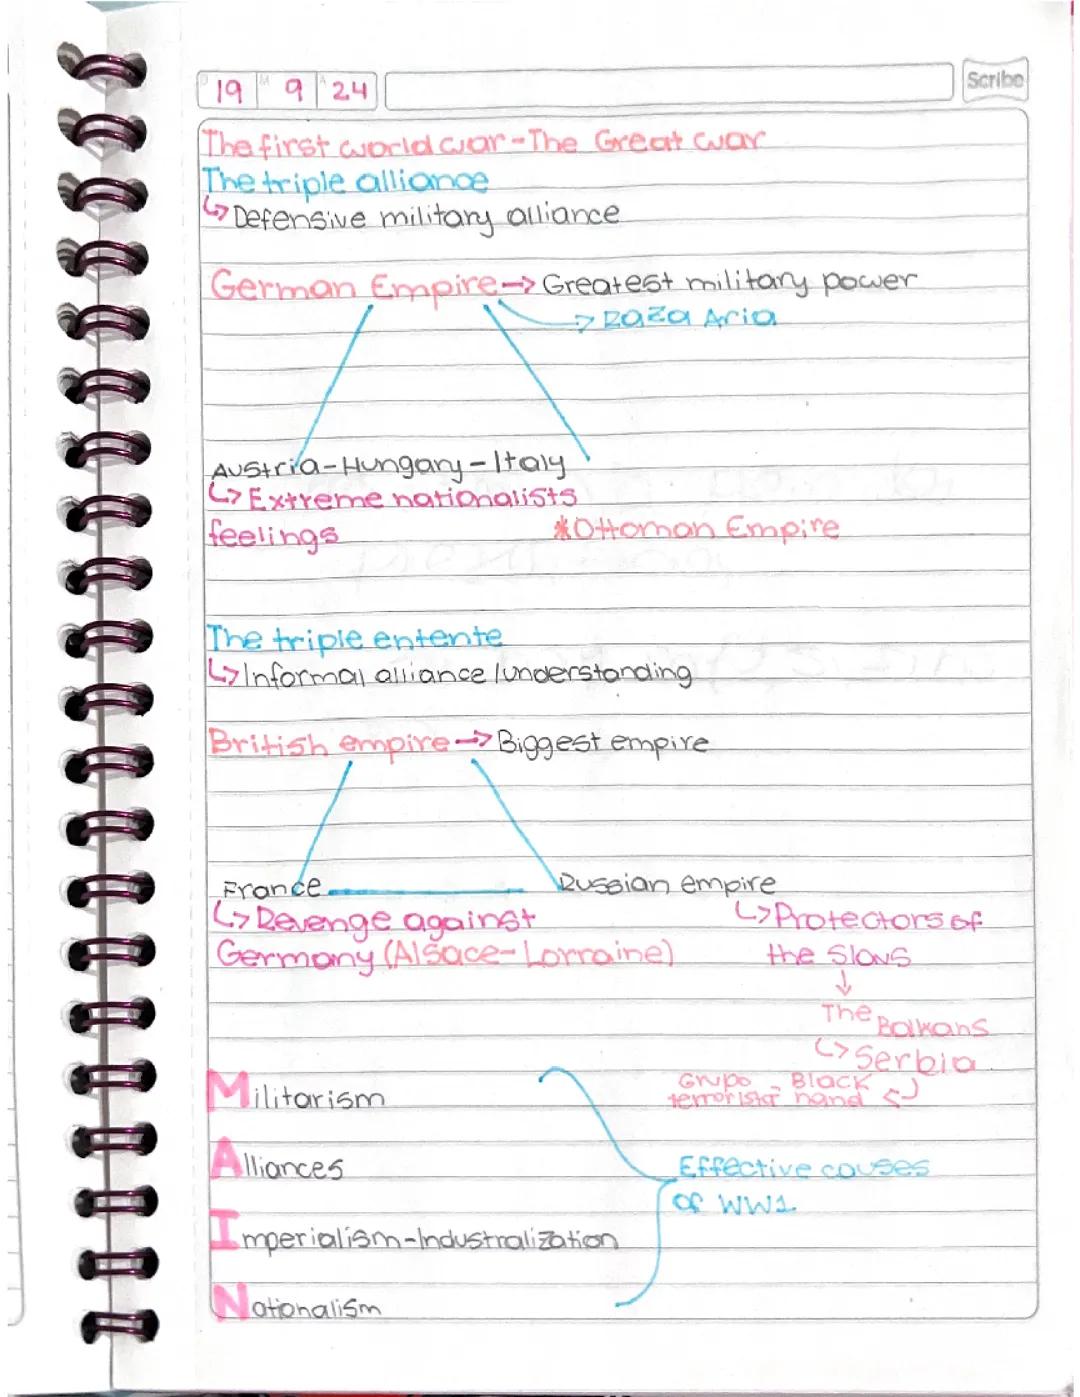 D 19 M 9 A 24
Scribe
The first world war - The Great war
The triple alliance
↳ Defensive military alliance
German Empire → Greatest military power
→ Raza Aria
Austria-Hungary - Italy
↳ Extreme nationalists
feelings
*Ottoman Empire
The triple entente
↳ Informal alliance / understanding
British empire → Biggest empire
France
Russian empire
↳ Revenge against
Germany (Alsace-Lorraine)
↳ Protectors of
the Slavs
↓
The Balkans
↳ Serbia
Grupo terrorista - Black hand
Militarism
Alliances
Imperialism-Industralization
Nationalism
Effective causes
of WW1